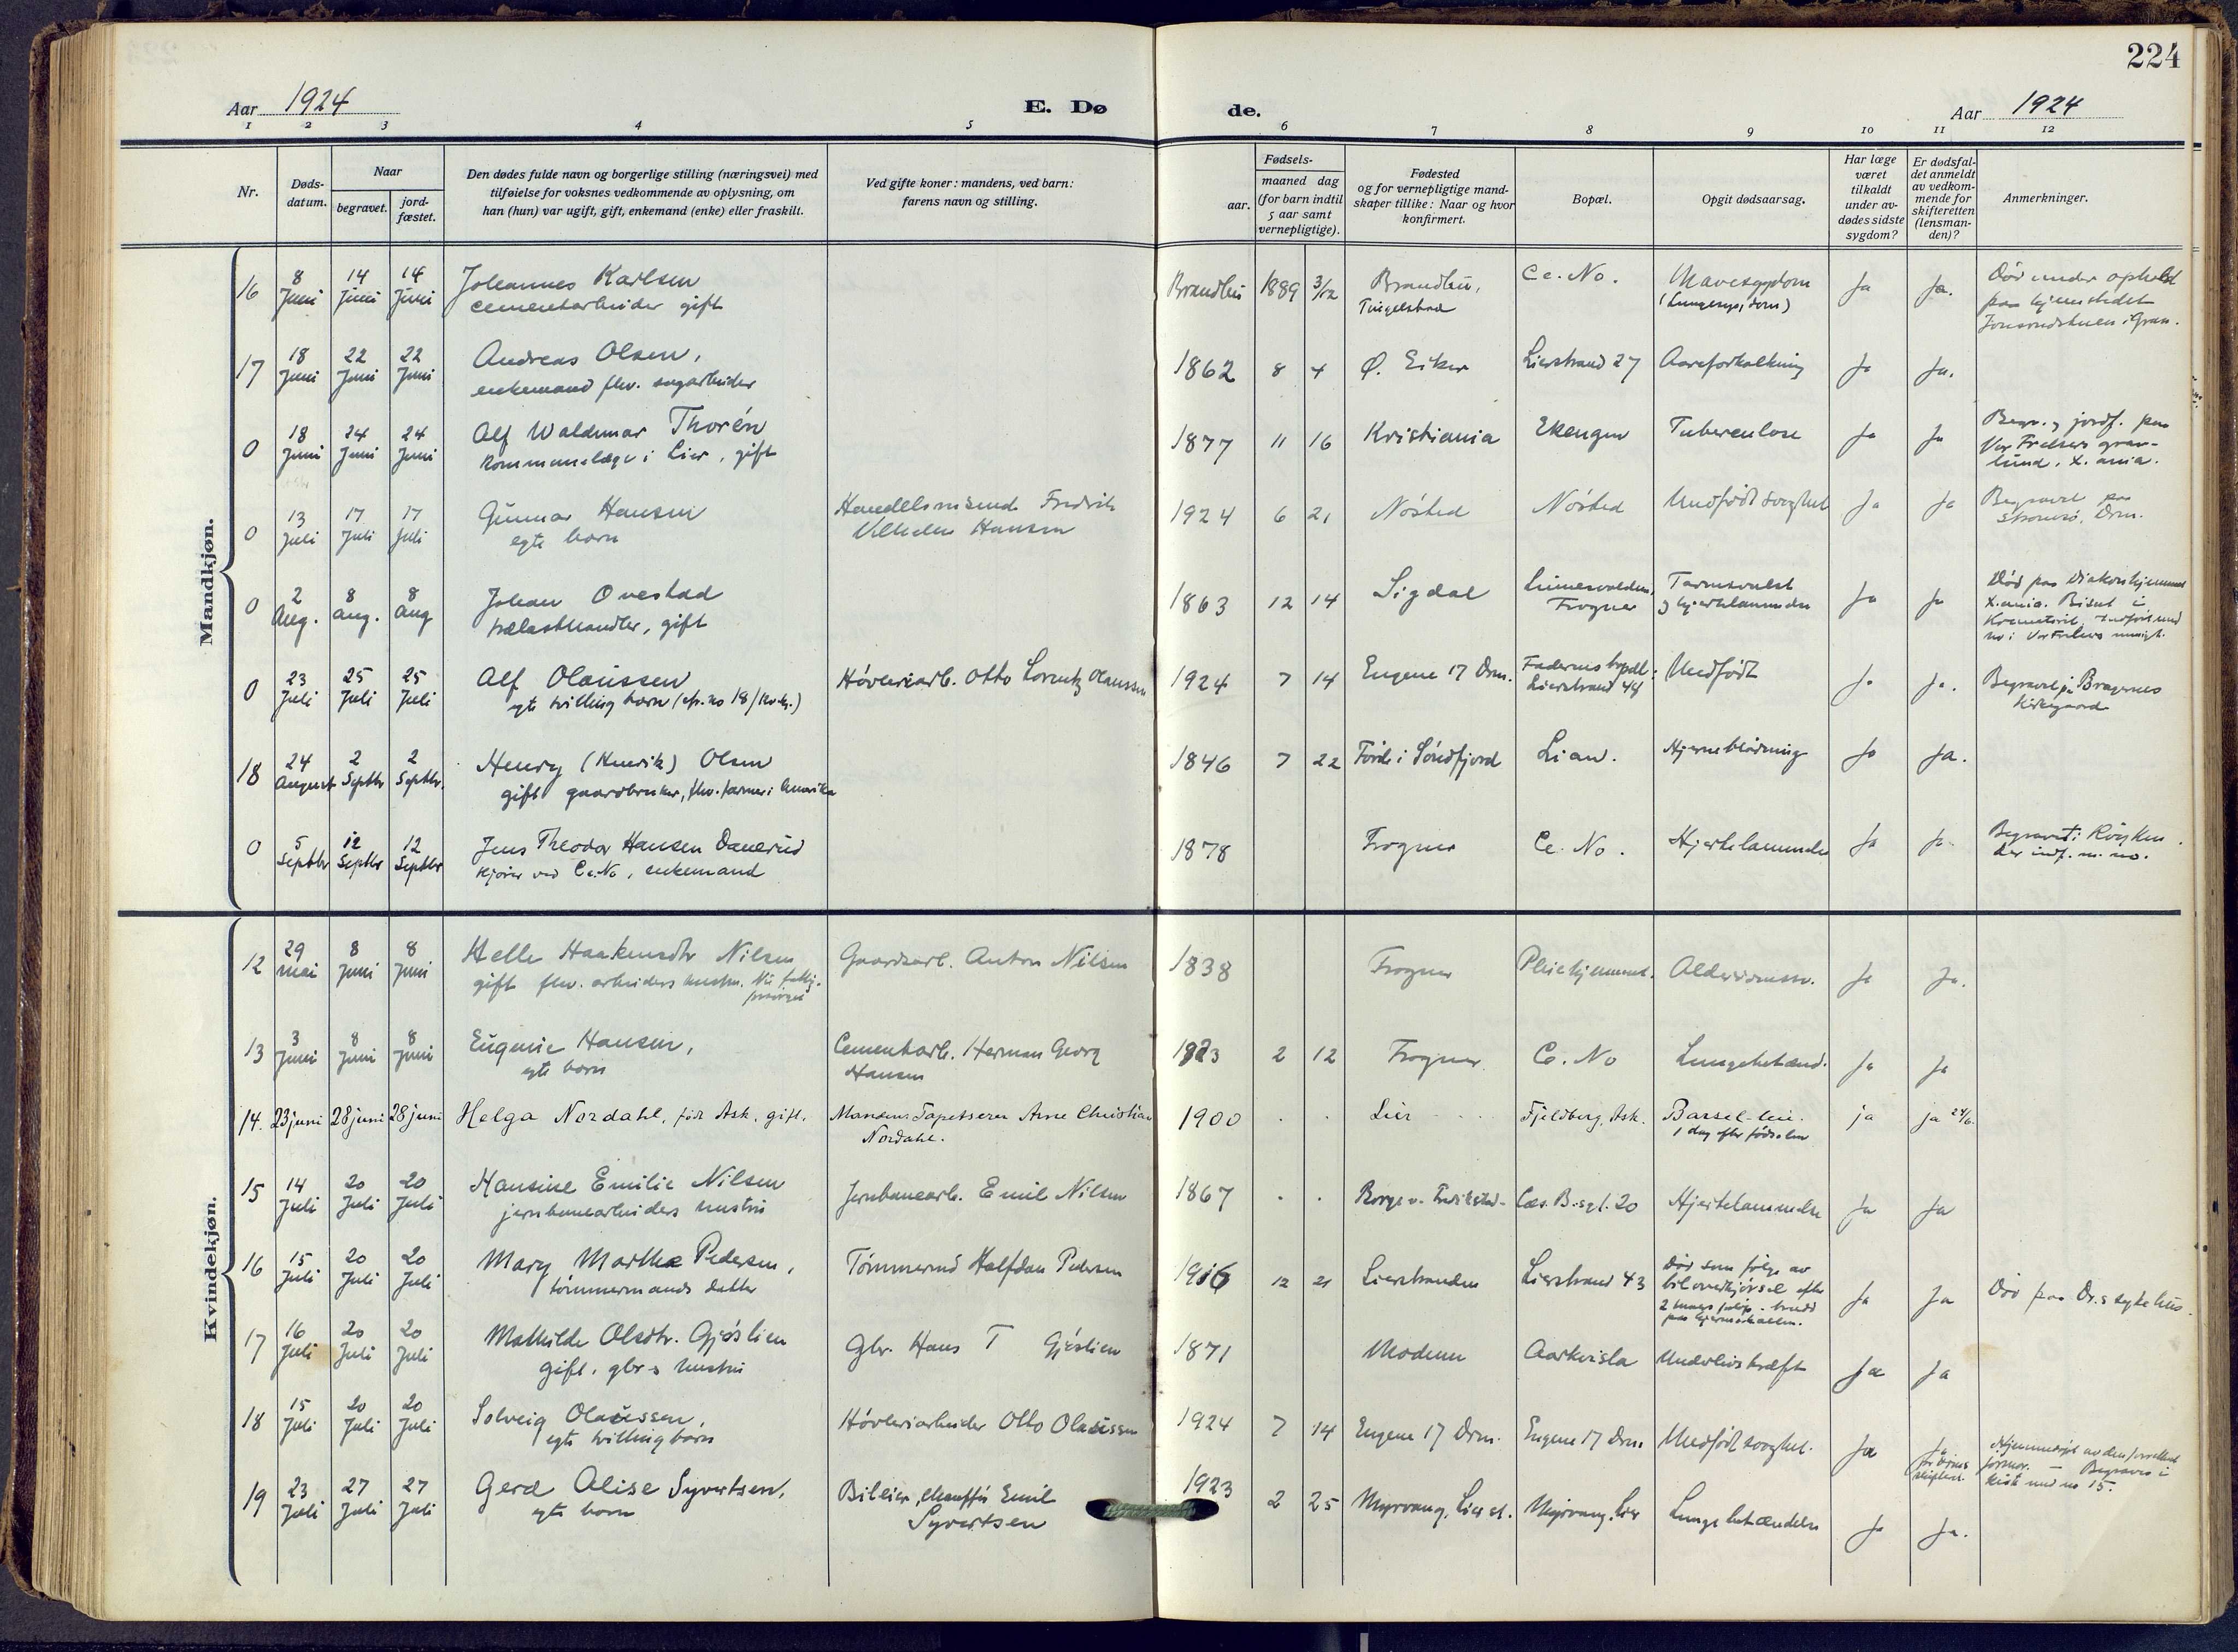 224
Aar 1924
E. Dø
de.
Aar 1924
1 2 3 4 5 6 7 8 9 10 11 12
Nr.
Døds-
datum.
Naar
begravet.
jord-
fæstet.
Den dødes fulde navn og borgerlige stilling (næringsvei) med
tilføielse for voksnes vedkommende av oplysning, om
han (hun) var ugift, gift, enkemand (enke) eller fraskilt.
Ved gifte koner: mandens, ved barn:
farens navn og stilling.
Fødsels-
aar.
maaned dag
(for barn indtil
5 aar samt
vernepligtige).
Fødested
og for vernepligtige mand-
skaper tillike: Naar og hvor
konfirmert.
Bopæl.
Opgit dødsaarsag.
Har læge
været
tilkaldt
under av-
dødes sidste
sygdom?
Er dødsfal-
det anmeldt
av vedkom-
mende for
skifteretten
(lensman-
den)?
Anmerkninger.
Mandkjøn.
16 8 Juni 14 Juni 14 Juni Johannes Karlsen
cementarbeider gift
Brandbu 1889 3/12 Brandbu,
Tingelstad
Ce. No. Mavesygdom
(Lungesygdom)
Ja Ja. Død under ophold
paa hjemstedet
i Gran.
17 18 Juni 22 Juni 22 Juni Andreas Olsen,
enkemand fhv. sagarbeider
1862 8 4 Ø. Eiker Lierstrand 27 Aareforkalkning Ja Ja.
0 18 Juni 24 Juni 24 Juni Alf Waldemar Thorén
kommunelæge i Lier, gift
1877 11 16 Kristiania Ekengen Tuberculose Ja Ja Begr. og jordf. paa
Vor Frelsers grav-
lund, X.ania.
0 13 Juli 17 Juli 17 Juli Gunnar Hansen
egte barn
Handelsreisend. Fredrik
Vilhelm Hansen
1924 6 21 Nøsted Nøsted Medfødt svaghet Ja Ja Begravet paa
Strømsø, Drm.
0 2 Aug. 8 Aug. 8 Aug Johan Ovestad
trælasthandler, gift
1863 12 14 Sigdal
Frogner
Tarmsvulst
og hjertelammelse
Ja Ja Død paa Diakonhjemmet
X.ania. Bisat i
Krematoriet,
0 23 Juli 25 Juli 25 Juli Alf Olaussen
egte tvilling barn (cfr. no 18/Kvk.)
Høvleriarb. Otto Lorentz Olaussen
1924 7 14 Eugene 17 Drm. Faderens bopæl:
Lierstrand 44
Medfødt Ja Ja. Begravet paa Bragernes
Kirkegaard
18 24 August 2 Septbr 2 Septbr. Henry (Henrik) Olsen
gift gaardbruker, fhv. farmer i Amerika
1846 7 22 Førde i Søndfjord Lian. Hjerneblødning Ja Ja.
0 5 Septbr 12 Septbr 12 Septbr Jens Theodor Hansen Danerud
kjører ved Ce. No, enkemand
1878 Frogner Ce. No. Hjertelammelse Ja Ja. Begravet i Røyken.
der indf. m. no.
Kvindekjøn.
12 29 mai 8 Juni 8 Juni Helle Haakensdtr Nilsen
gift fhv. arbeiders hustru.
Gaardsarb. Anton Nilsen
1838 Frogner Pleiehjemmet. Alderdomssv. Ja Ja.
13 3 Juni 8 Juni 8 Juni Eugenie Hansen,
egte barn
Cementarb. Herman Georg
Hansen
1923 2 12 Frogner Ce. No Lungebetænd. Ja Ja
14. 23 juni 28 juni 28 juni Helga Nordahl, født Ask, gift. Manden: Tapetserer Arne Christian
Nordahl.
1900 . . Lier Fjeldberg, Ask. Barsel-
1 dag efter fødselen
ja ja 24/6.
15 14 Juli 20 Juli 20 Juli Hansine Emilie Nilsen
jernbanearbeiders hustru
Jernbanearb. Emil Nilsen
1867 . . Borge v. Fredrikstad Hjertelammelse Ja Ja
16 15 Juli 20 Juli 20 Juli Mary Marthe Pedersen,
tømmermands datter
Tømmermd Halfdan Pedersen
1916 12 21 Lierstranden Lierstrand 43 Død som følge av
biloverkjørsel efter
Ja Ja Død paa Dr.s sykehus.
17 16 Juli 20 Juli 20 Juli Mathilde Olsdtr. Gjøslien
gift. gbr.s hustru
Gbr. Hans T Gjøslien
1871 Modum Aarkvisla Underlivskræft Ja Ja
18 15 Juli 20 Juli 20 Juli Solveig Olaussen,
egte tvilling barn
Høvleriarbeider Otto Olaussen
1924 7 14 Eugene 17 Drm. Eugene 17 Drm Medfødt svaghet. Ja Ja
Hjemmedøpt av
jormor. — Begraves i
kiste med no 15.
19 23 Juli 27 Juli 27 Juli Gerd Alise Syvertsen,
egte barn
Bileier, chauffør Emil
Syvertsen
1923 2 25 Myrvang, Lier st. Myrvang, Lier Lungebetændelse Ja Ja.